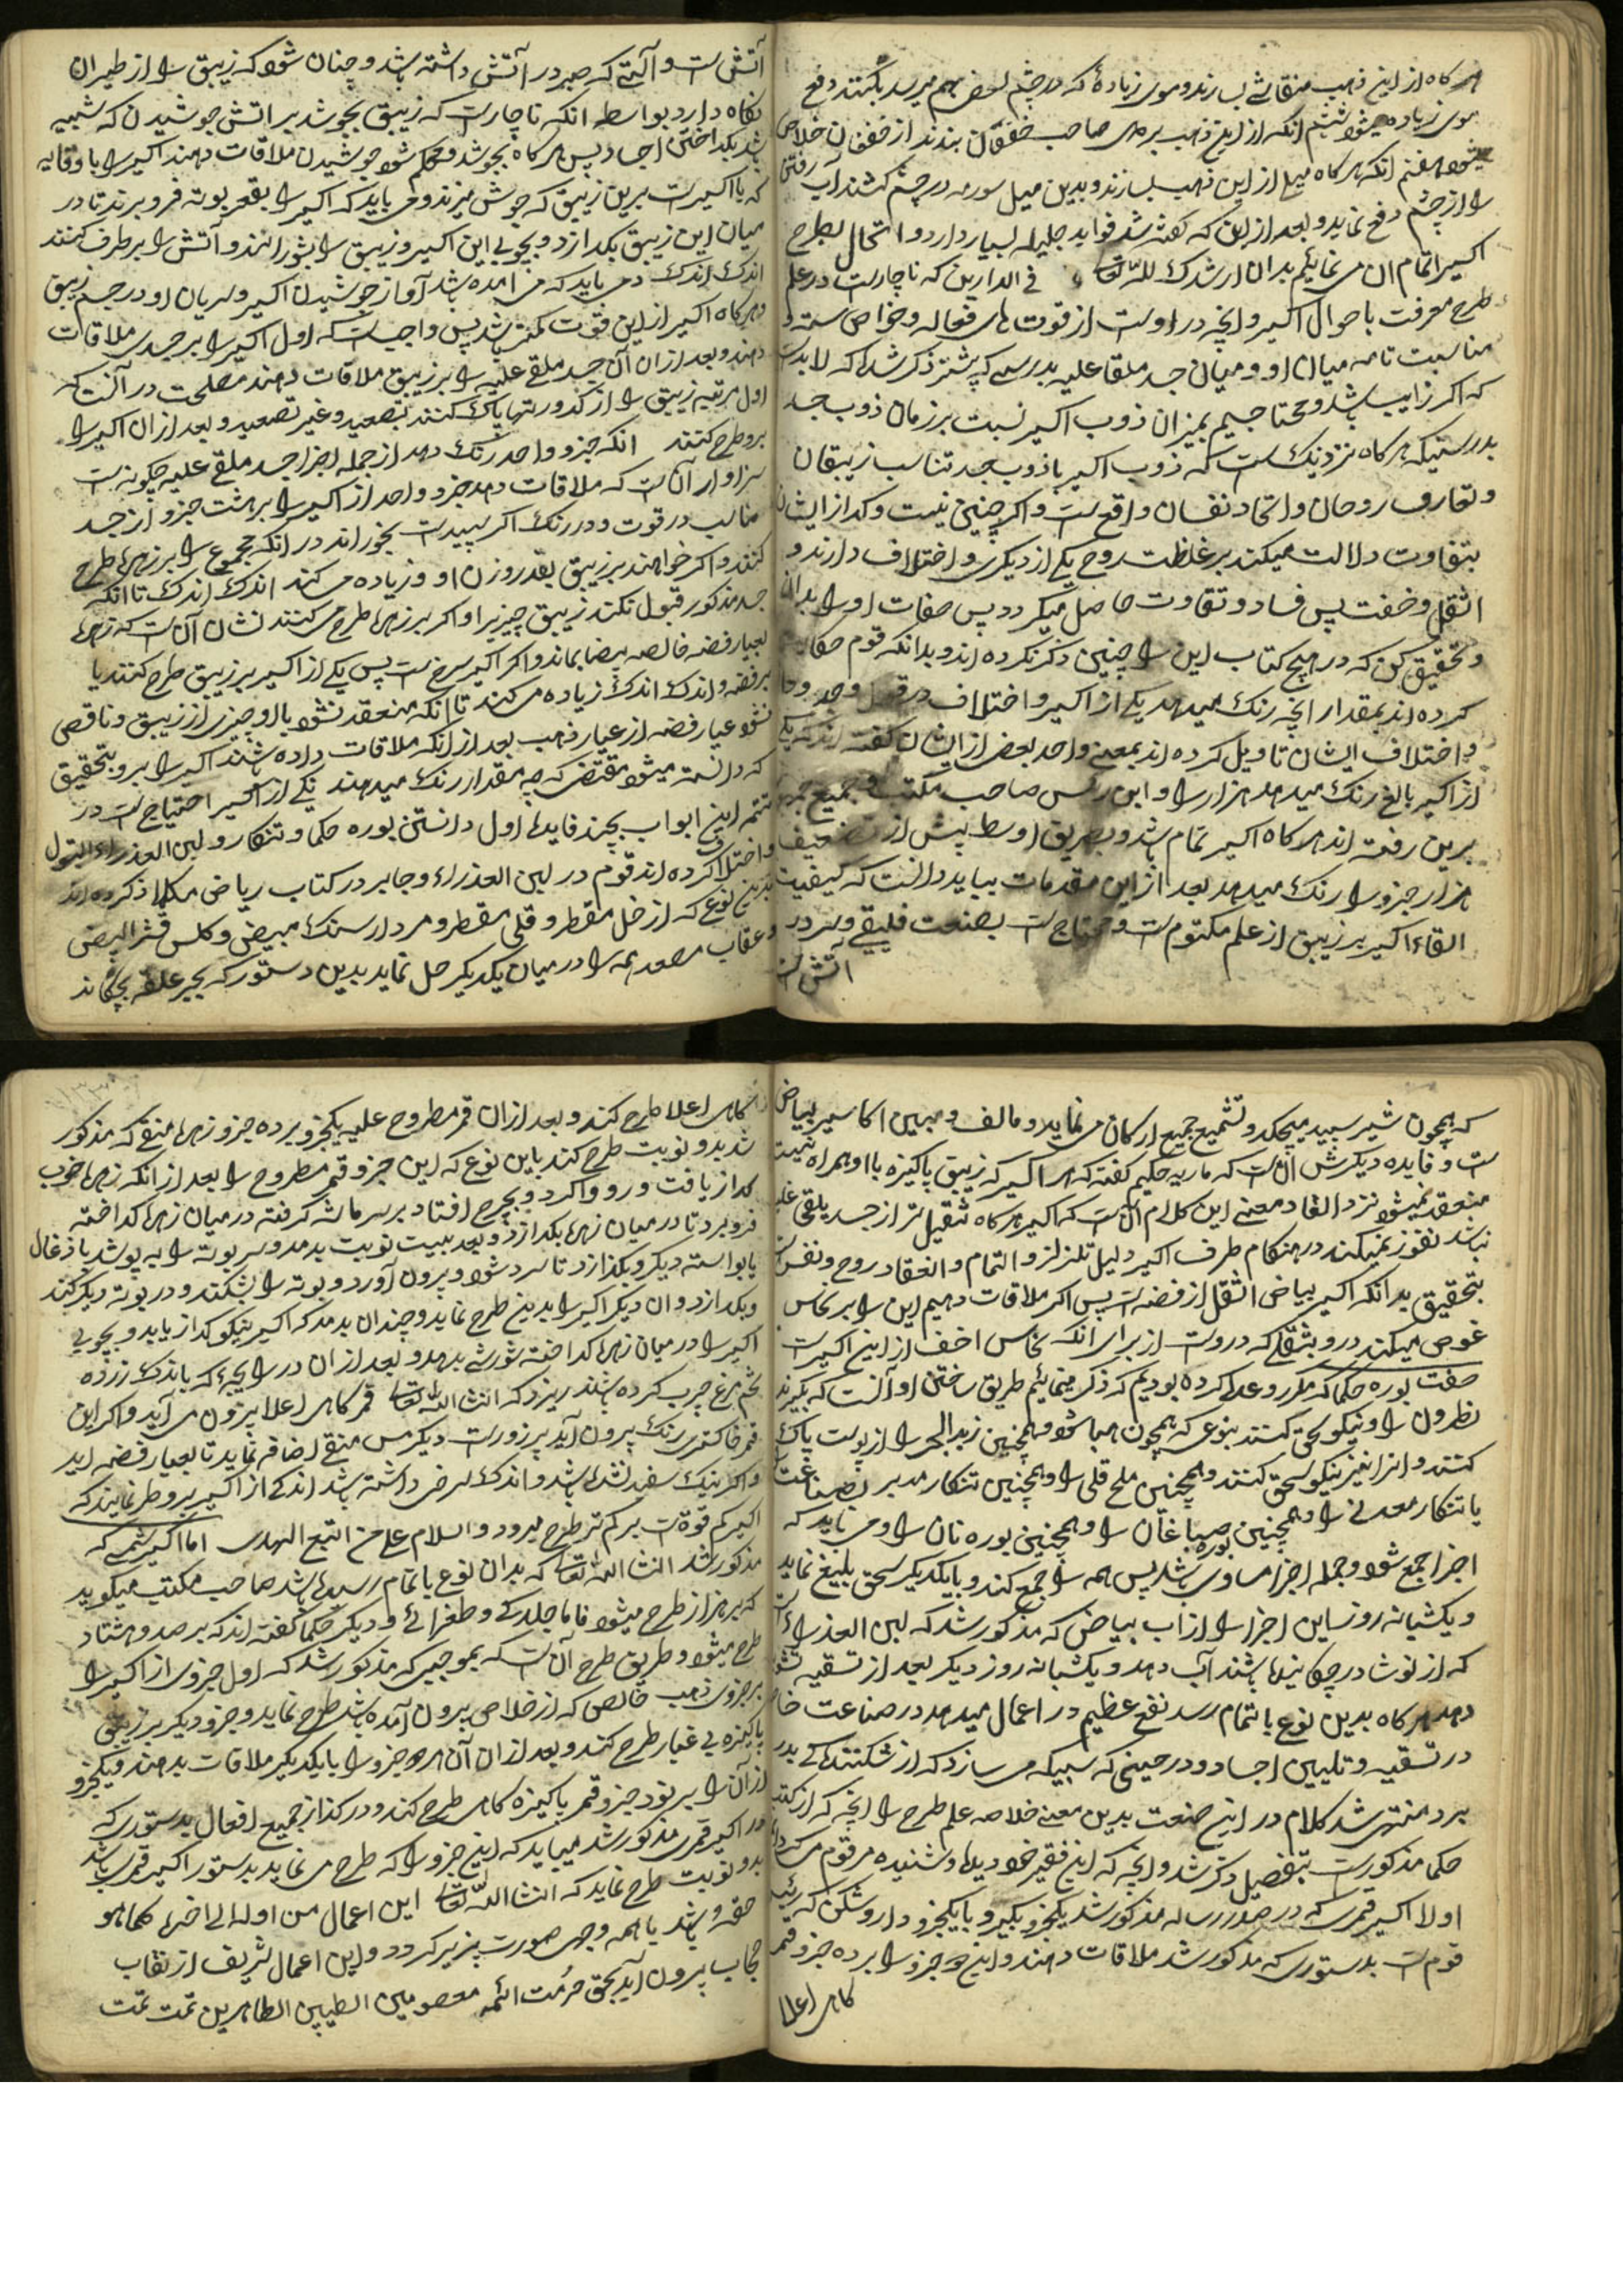 هر کاه ازین ذهب منقاشی بسازند و موی زیاده که در چشم بعضی بهم میرسد بکنند دفع
موی زیاده میشود ششم انکه از این ذهب بر صاحب خفقان بندند از خفقان خلاص
میشود هفتم انکه هر کاه میل از این ذهب بسازند و بدین میل سورمه در چشم کشند آب رفتن
را از چشم دفع نماید و بعد از این که کفته شد فواید جلیله بسیار دارد و اتحال بطرح
اکسیر اتمام ان می نمائیم بدان ارشدک لله تعا فی الدارین که ناچارست در علم
طرح معرفت باحوال اکسیر و انچه در اوست از قوت های فعاله و خواص
مناسبت تامه میان او و میان جسد ملقا علیه بدرستی که پیشتر ذکر شد که لابدست
که اکر زایب باشد و محتاجیم بمیزان ذوب اکسیر نسبت بر زمان ذوب جسد
بدرستیکه هر کاه نزدیکست که ذوب اکسیر با ذوب جسد تناسب زیبقان
و تعارف روحان و اتحاد نفسان واقعست و اکر چنین نیست و کداز ایشان
بتفاوت دلالت میکند بر غلظت روح یکی از دیکری و اختلاف دارند و
اثقل و خفت پس فساد و تفاوت حاصل میکردد پس صفات او را بدان
و تحقیق کن که در هیچ کتاب این را چنین ذکر نکرده اند و بدانکه قوم
کرده اند بمقدار انچه رنک میدهد یکی از اکسیر و اختلاف در
و اختلاف ایشان تاویل کرده اند بمعنی واحد بعضی از ایشان کفته اند که یکی
از اکسیر بالغ رنک میدهد هزار را و این رئس صاحب مکتب و جمیع
برین رفته اند هر کاه اکسیر تمام باشد و بطریق اوسط پیش از تضعیف
هزار جزو را رنک میدهد بعد از این مقدمات بباید دانست که کیفیت
القاء اکسیر بر زیبق از علم مکتومست و محتاجست بصنعت فلیقی و سر در
آتش است
آتش است و آلتی که صبر در آتش داشته باشد و چنان شود که زیبق را از طیران
نکاه دارد بواسطه انکه ناچارست که زیبق بجوشد بر اتش جوشیدن که شبیه
باشد بکداختن اجساد پس هر کاه بجوشد و محکم شود جوشیدن ملاقات دهند اکسیر را با وقایه
که با اکسیرست برین زیبق که جوش میزند و می باید که اکسیر را بقعر بوته فرو برند تا در
میان این زیبق بکدازد و بچوبی این اکسیر و زیبق را بشورانند و آتش را بر طرف کنند
اندک اندک دمی باید که می امده باشد آواز جوشیدن اکسیر و سریان او در جسم زیبق
و هر کاه اکسیر از این قوت کمتر باشد پس واجبست که اول اکسیر را بر جسدی ملاقات
دهند و بعد از ان آن جسد ملقی علیه را بر زیبق ملاقات دهند مصلحت در آنست که
اول مرتبه زیبق را از کدورتها پاک کنند بتصعید و غیر تصعید و بعد از ان اکسیر را
بر و طرح کنند انکه جزو واحد رنک دهد از جمله اجزا جسد ملقی علیه چکونه است
سزاوار آنست که ملاقات دهد جزو واحد از اکسیر را بر هشت جزو از جسد
مناسب در قوت و در رنک اکر سپیدست بخوراند در انکه مجموع را بر زهره طرح
کنند و اکر خواهند بر زیبق بقدر وزن او و زیاده می کنند اندک اندک تا انکه
جسد مذکور قبول نکند زیبق چیزیرا و اکر بر زهره طرح می کنند نشان آنست که زهره
بعیار فضه خالصه بیضا بماند و اکر اکسیر سرخست پس یکی از اکسیر بر زیبق طرح کنند یا
بر فضه و اندک اندک زیاده می کنند تا انکه منعقد نشود با او چیزی از زیبق و ناقص
نشود عیار فضه از عیار ذهب بعد از انکه ملاقات داده باشند اکسیر را برو بتحقیق
که دانسته میشود مقتضی که چه مقدار رنک میدهند یکی از اکسیر احتیاجست در
تتمه این ابواب بچند فایده اول دانستن بوره حکما و تنکار و لبن العذراء البتول
و اختلاف کرده اند قوم در لبن العذراء و جابر در کتاب ریاض مکلا ذکر کرده اند
بدین نوع که از خل مقطر و قلی مقطر و مردار سنک مبیض و کلس قشر البیض
و عقاب مصعد همه را در میان یکدیکر حل نماید بدین دستور که بجر علقه بچکاند
که همچون شیر سپید میچکد و تشمیع جمیع ارکان می نماید و مالف و مهین اکاسیر بیاض
ست و فایده دیکرش انست که ماریه حکیم کفته که هر اکسیر که زیبق پاکیزه با او همراه نیست
منعقد نمیشود نزد القا و معنی این کلام آنست که اکسیر هر کاه ثقیل تر از جسد یلقی علیه
نباشد نفوذ نمیکند در هنکام طرف اکسیر دلیل تلزلز و التمام و انعقاد روح و نفس
بتحقیق بدانکه اکسیر بیاض اثقل از فضه است پس اکر ملاقات دهیم این را بر نحاس
غوص میکند در و بثقلی که در وست از برای انکه نحاس اخف از این اکسیرست
صفت بوره حکما که مکرر وعده کرده بودیم که ذکر مینمائیم طریق ساختن او آنست که بکیرند
نطرون را و نیکو سحق کنند بنوعی که همچون هبا شود و همچنین زبد البحر را از پوست پاک
کنند و انرا نیز نیکو سحق کنند و همچنین ملح قلی را و همچنین تنکار مدبر بصناعت
یا تنکار معدنی را و همچنین بوره صباغان را و همچنین بوره نان را و می باید که
اجزا جمع شود و جمله اجزا مساوی باشد پس همه را جمع کند و با یکدیکر سحق بلیغ نماید
و یکشبانه روز این اجزا را از اب بیاض که مذکور شد که لبن العذراست
که از نوشادر چکانیده باشند آب دهد و یکشبانه روز دیکر بعد از تسقیه
دهد هر کاه بدین نوع باتمام رسد نفع عظیم در اعمال میدهد در صناعت
در تسقیه و تلیین اجساد و در حینی که سبیکه می سازد که از شکنندکی بدر
برد منتهی شد کلام در این صنعت بدین معنی خلاصه علم طرح را انچه که از کتب
حکما مذکورست بتفصیل ذکر شد و انچه که این فقیر خود دیده و شنیده مرقوم می کرداند
اولا اکسیر قمری که در صدر رساله مذکور شد یکجزو بکیرد و با یکجزو دارو شکن که
قومست بدستوری که مذکور شد ملاقات دهند و این جزو را بر ده جزو قمر
کاهی اعلا
کاهی اعلا طرح کند و بعد از ان قمر مطروح علیه یکجزو بر ده جزو زهره منقی که مذکور
شد بدو نوبت طرح کند باین نوع که این جزو قمر مطروح را بعد از انکه زهره خوب
کداز یافت و رو واکرد و بچرخ افتاد بر سر ماشه کرفته در میان زهره کداخته
فرو برد تا در میان زهره بکدازد و بعد بیست نوبت بدمد و سر بوته را بپوشد با ذغال
یا بواسته دیکر و بکذارد تا سرد شود و بیرون آورد و بوته را بشکند و در بوته دیکر کند
و بکدازد و ان دیکر اکسیر را بدین طرح نماید و چندان بدمد که اکسیر نیکو کداز یابد و بچوبی
اکسیر را در میان زهره کداخته شورشی بدهد و بعد از ان در راچیه که باندک زرده
تخم مرغ چرب کرده باشند ریزد که انشا الله تعا قمر کاهی اعلا بیرون می آید و اکر این
قمر خاکستری رنک بیرون آید پر زورست دیکر مس منقی اضافه نماید تا بعیار فضه اید
و اکر نیک سفید نشده باشد و اندک سرخی داشته باشد اندکی از اکسیر برو طرح نمایند که
اکسیر کم قوتست بر کم تر طرح میرود و السلام علی من اتبع الهدی اما اکسیر شمسی که
مذکور شد انشا الله تعا که بدان نوع باتمام رسیده باشد صاحب مکتب میکوید
که بر هزار طرح میشود فاما جلدکی و طغرائی و دیکر حکما کفته اند که بر صد و هشتاد
طرح میشود و طریق طرح آنست که بموجبی که مذکور شد که اول جزوی از اکسیر را
بر جزوی ذهب خالص که از خلاص بیرون آمده باشد طرح نماید و جزو دیکر بر زیبق
پاکیزه بی غبار طرح کند و بعد از ان آن هر دو جزو را با یکدیکر ملاقات بدهند و یکجزو
از آن را بر نود جزو قمر پاکیزه کاهی طرح کند و در کداز جمیع افعال بدستوری که
در اکسیر قمری مذکور شد میباید که این جزو را که طرح می نماید بدستور اکسیر قمری باشد
بدو نوبت طرح نماید که انشا الله تعا این اعمال من اوله الی اخره کما هو
حقه و باشد با همه وجهی صورت پزیر کردد و این اعمال شریف از نقاب
حجاب بیرون اید بحق حرمت ائمه معصومین الطیبین الطاهرین تمت تمت